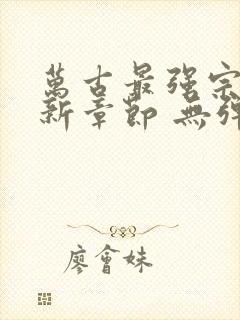 萬古最强宗
新章節 無弹
廖會妹